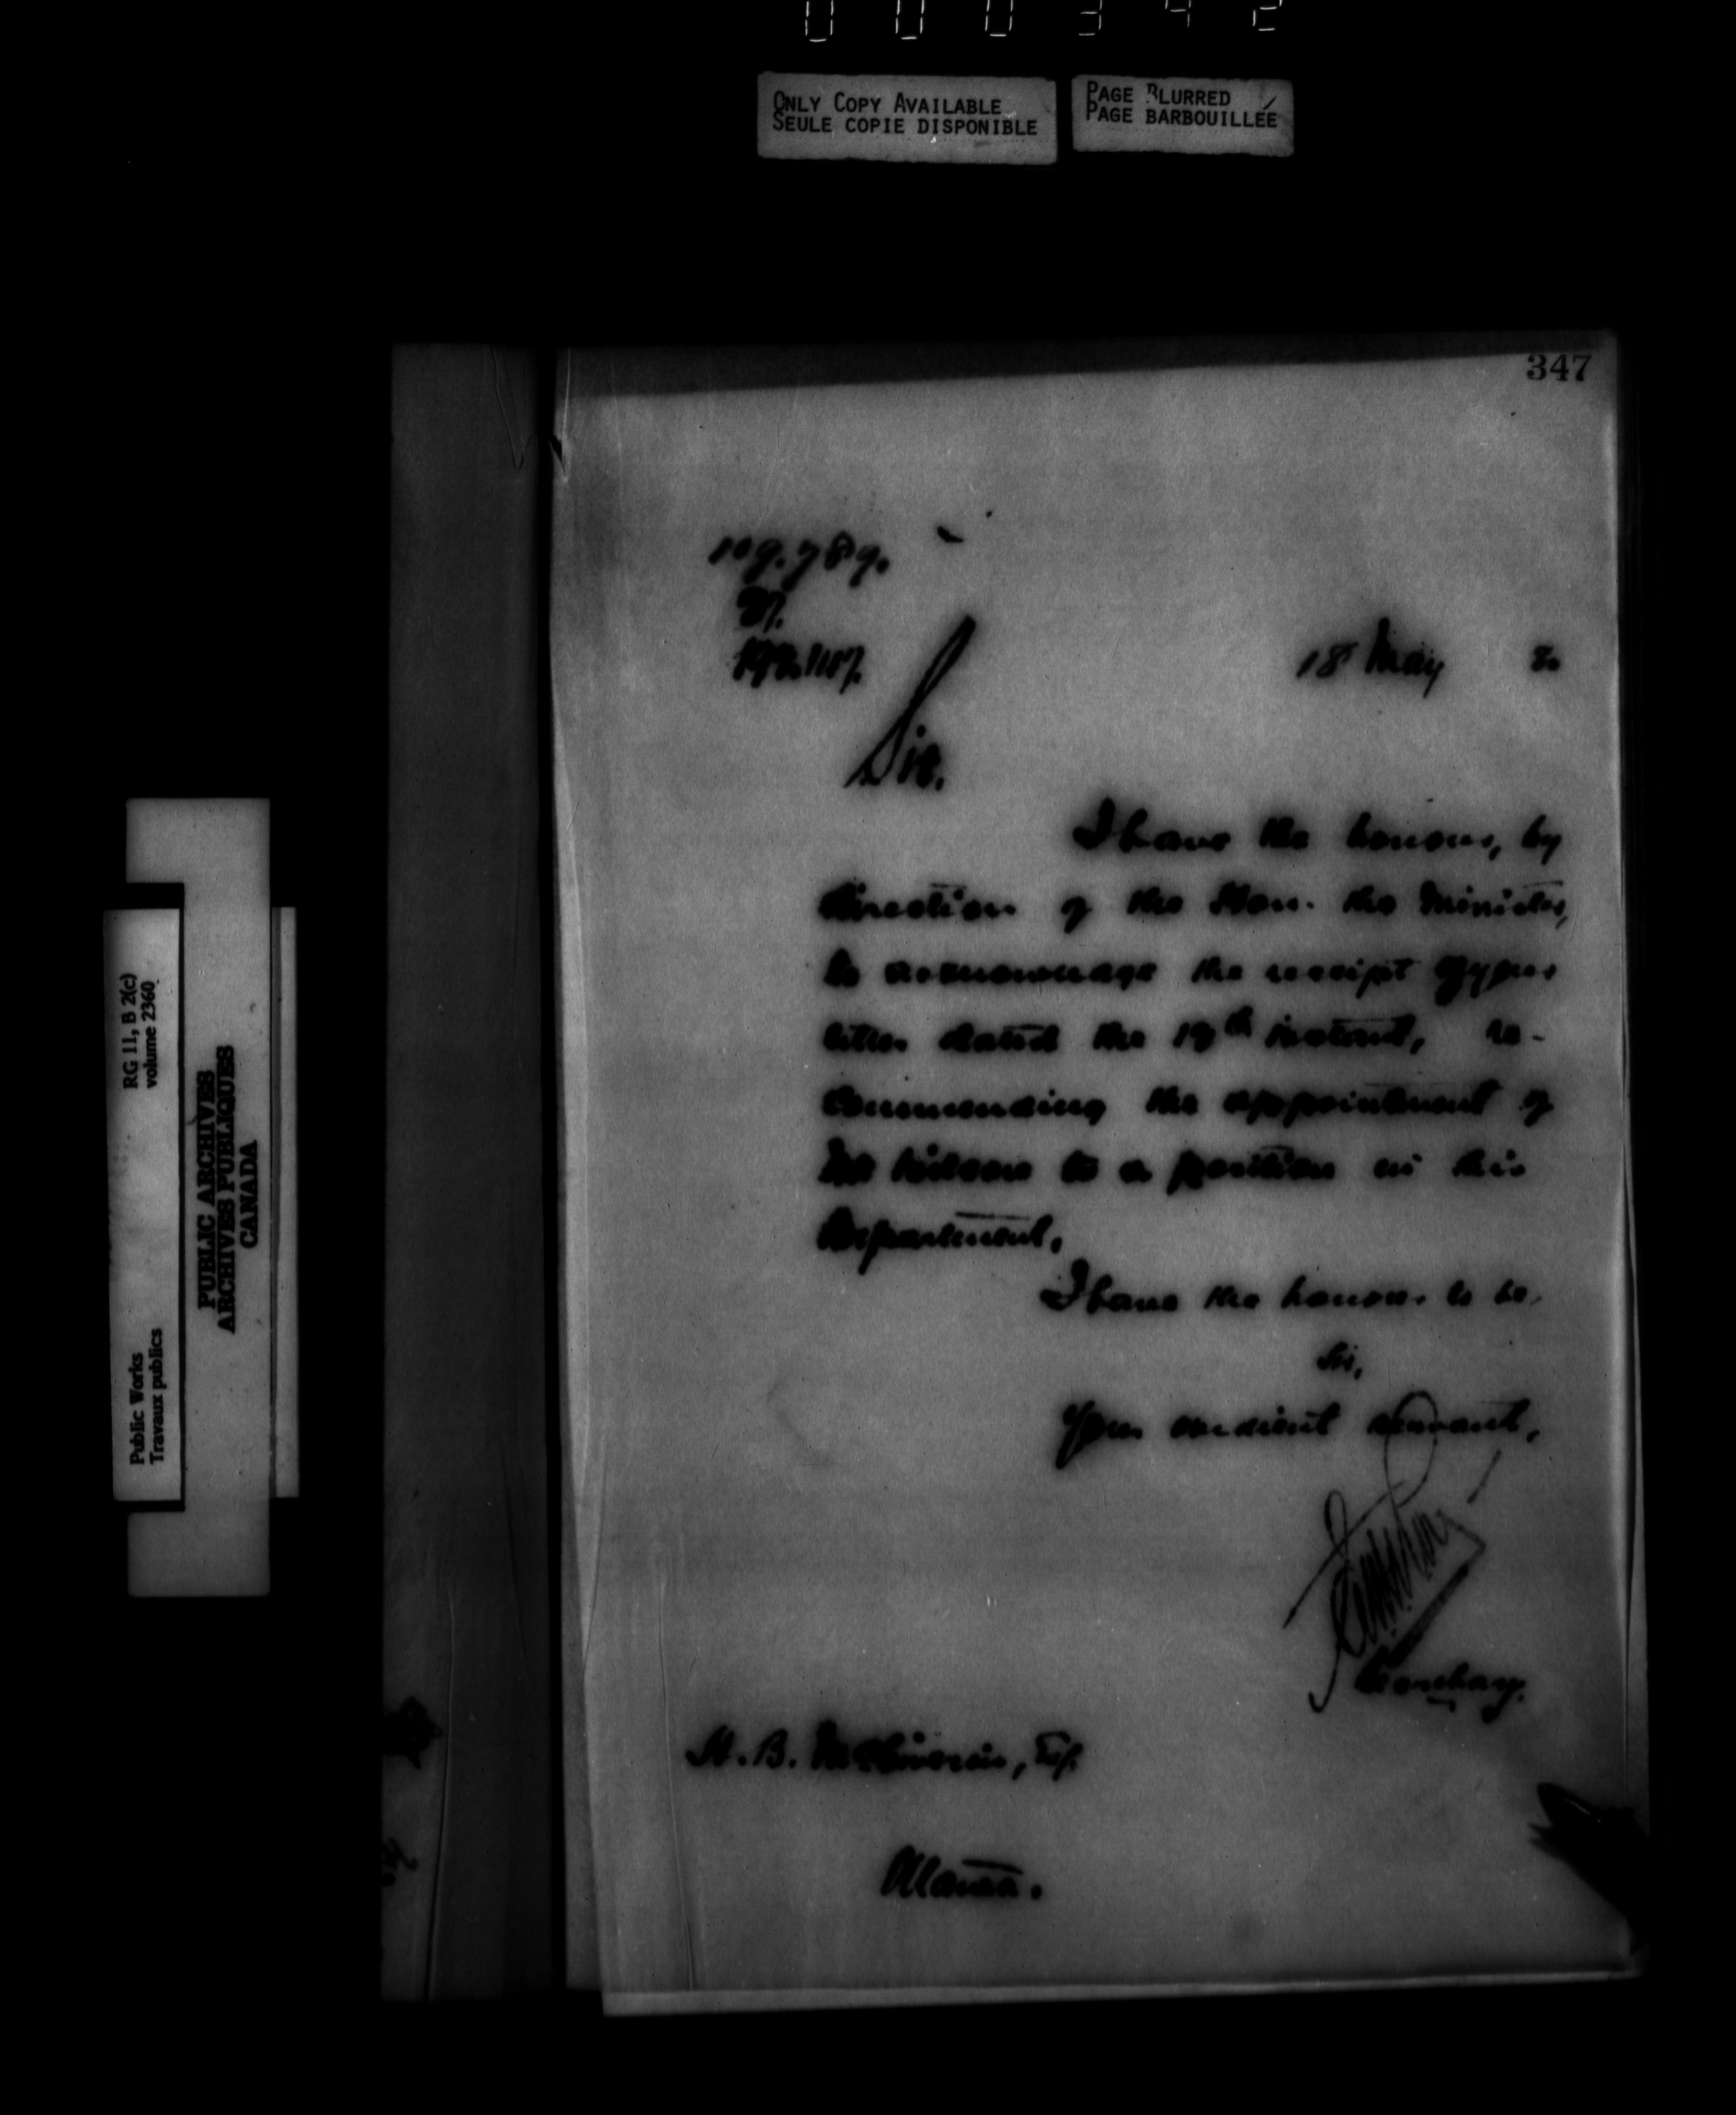 000342
ONLY COPY AVAILABLE
SEULE COPIE DISPONIBLE
PAGE BLURRED
PAGE BARBOUILLÉE
347
109.789.
18 May
Sir,
I have the honour, by
direction of the Hon. the Minister,
to acknowledge the receipt of your
letter dated the 17th instant, re-
commending the appointment of
Mr Wilson to a position in this
Department.
I have the honour to be,
Sir,
Your obedient servant,
Secretary.
H. B. Esq.
Ottawa.
RG 11, B 2(c)
volume 2360
Public Works
Travaux publics
PUBLIC ARCHIVES
ARCHIVES PUBLIQUES
CANADA